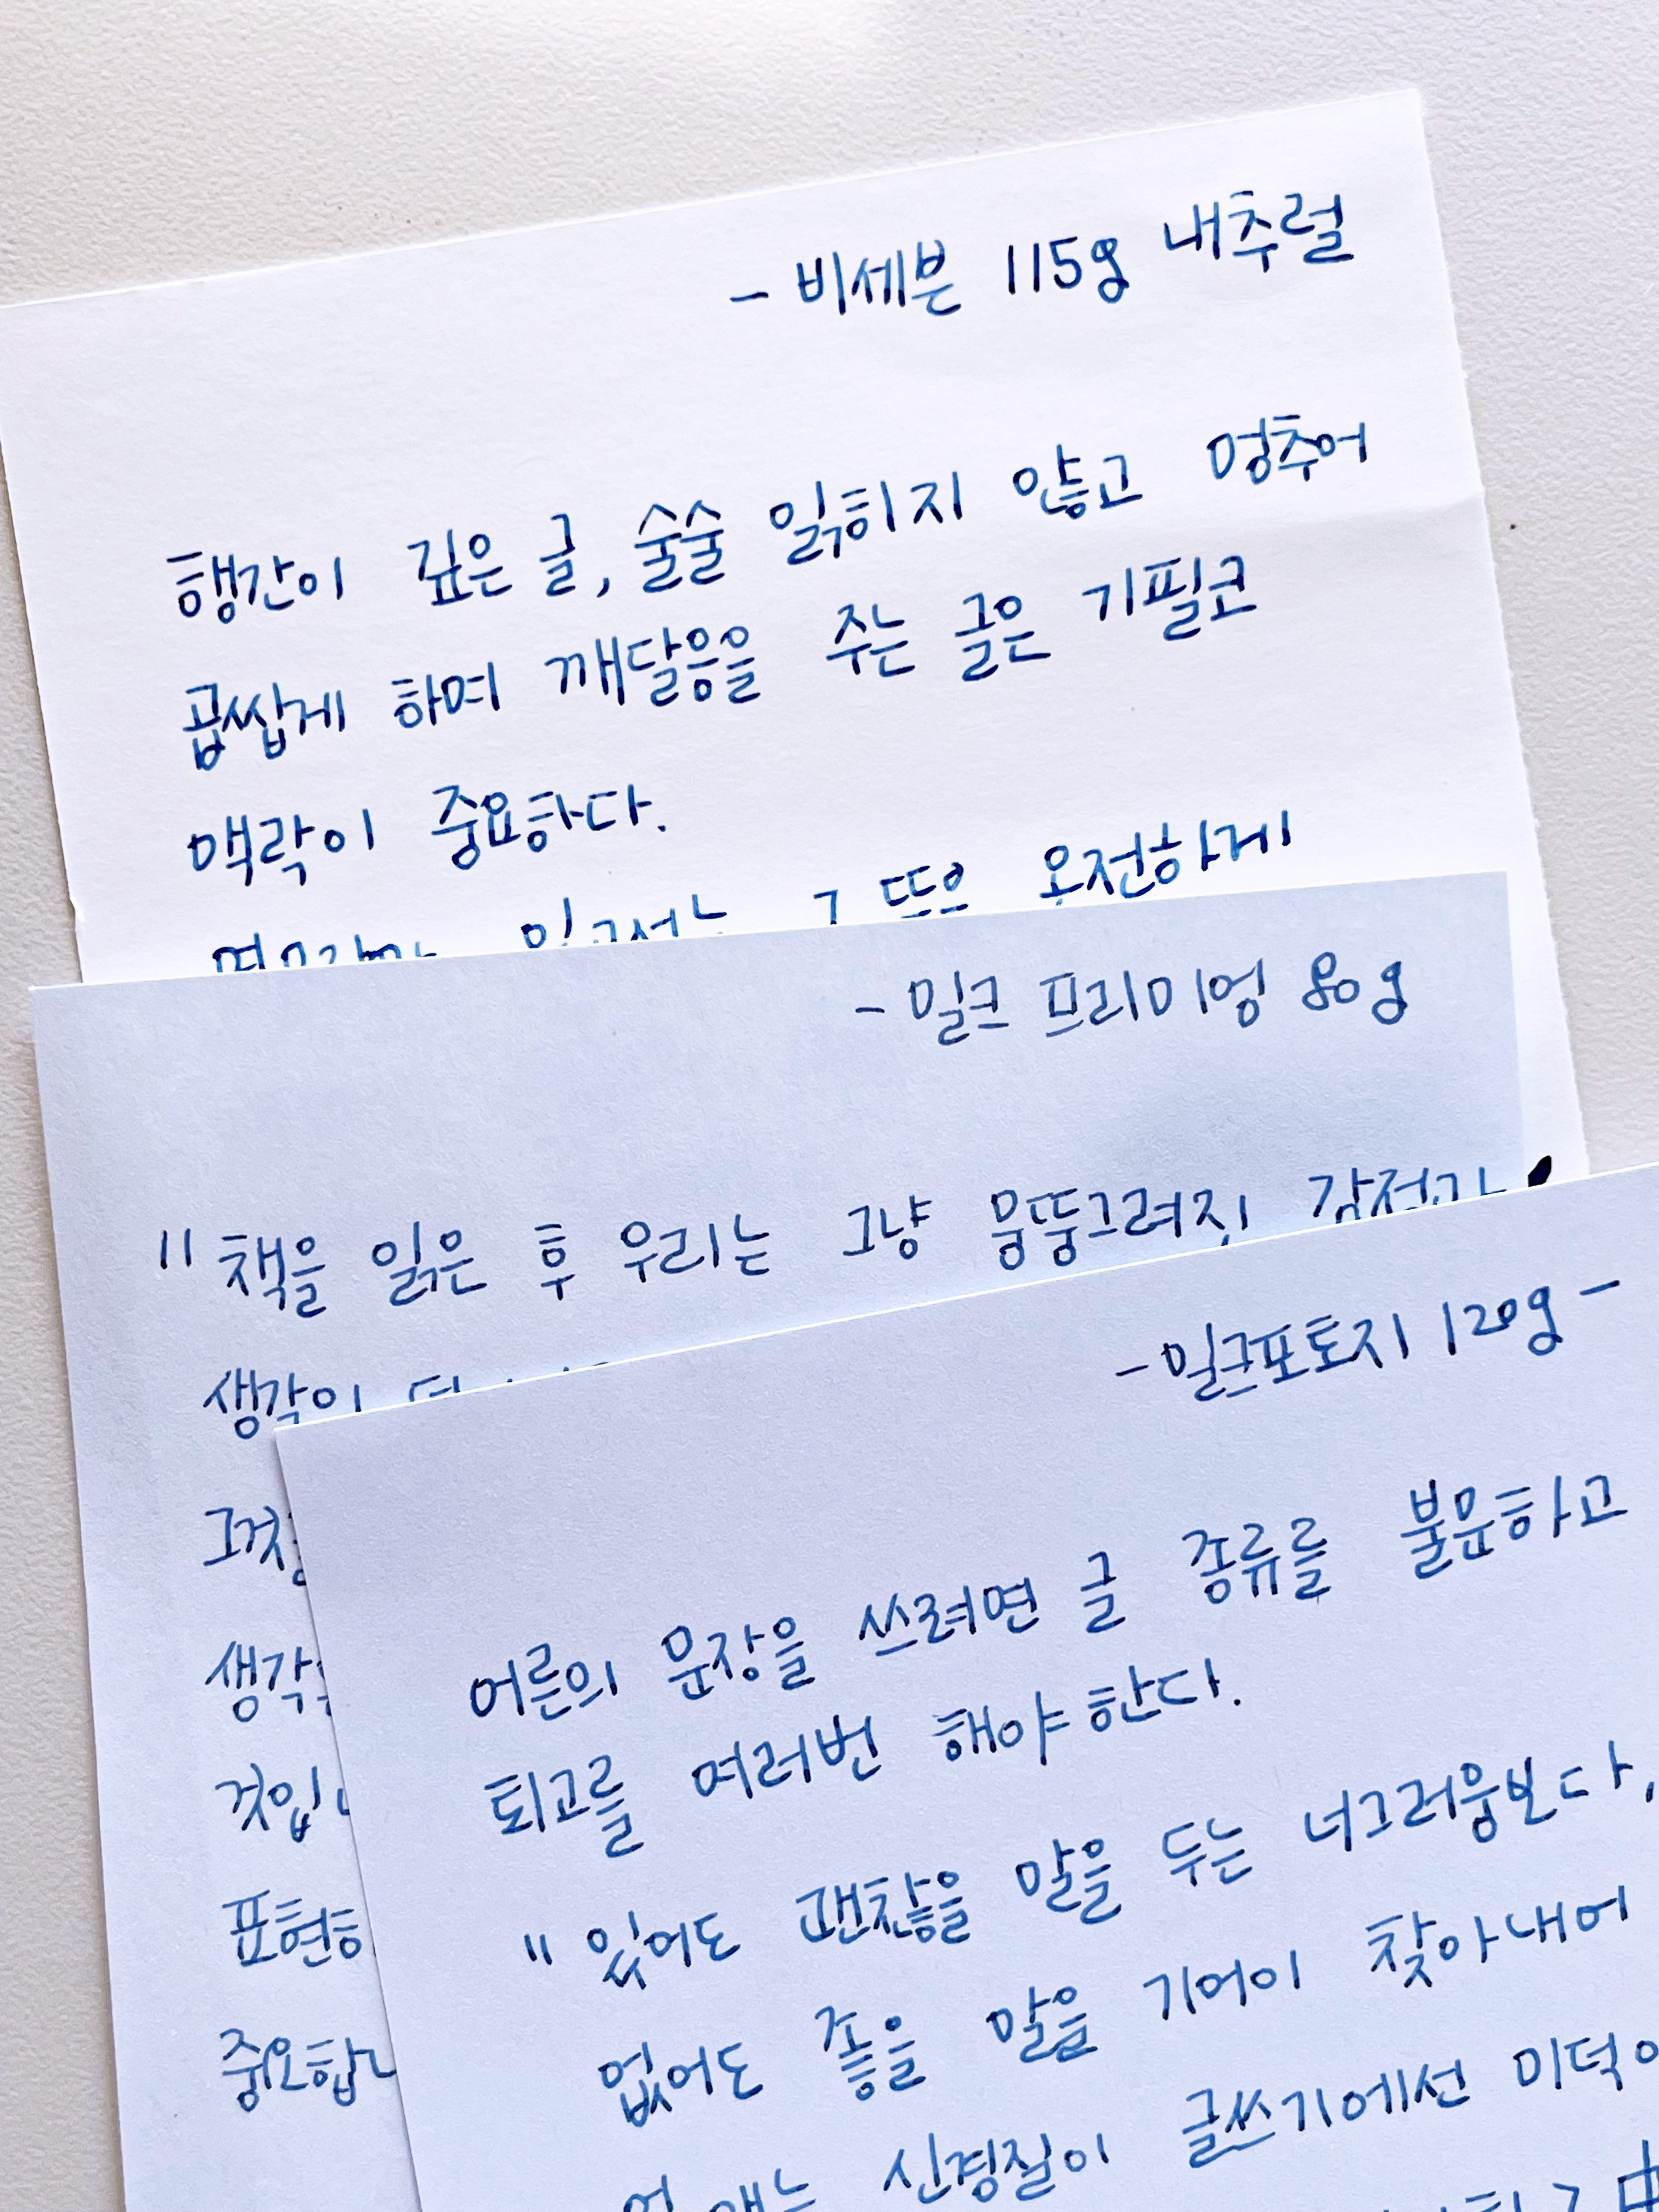 - 비세븐 115g 내추럴
행간이 깊은 글, 술술 읽히지 않고 멈추어
곱씹게 하며 깨달음을 주는 글은 기필코
맥락이 중요하다.
온전하게
- 밀크 프리미엄 80g
" 책을 읽은 후 우리는 그냥 뭉뚱그려진 감정과
생각이
생각
표현
중요합니
- 밀크포토지 120g -
어른의 문장을 쓰려면 글 종류를 불문하고
퇴고를 여러번 해야 한다.
" 있어도 괜찮을 말을 두는 너그러움보다,
없어도 좋을 말을 기어이 찾아내어
신경질이 글쓰기에선 미덕이